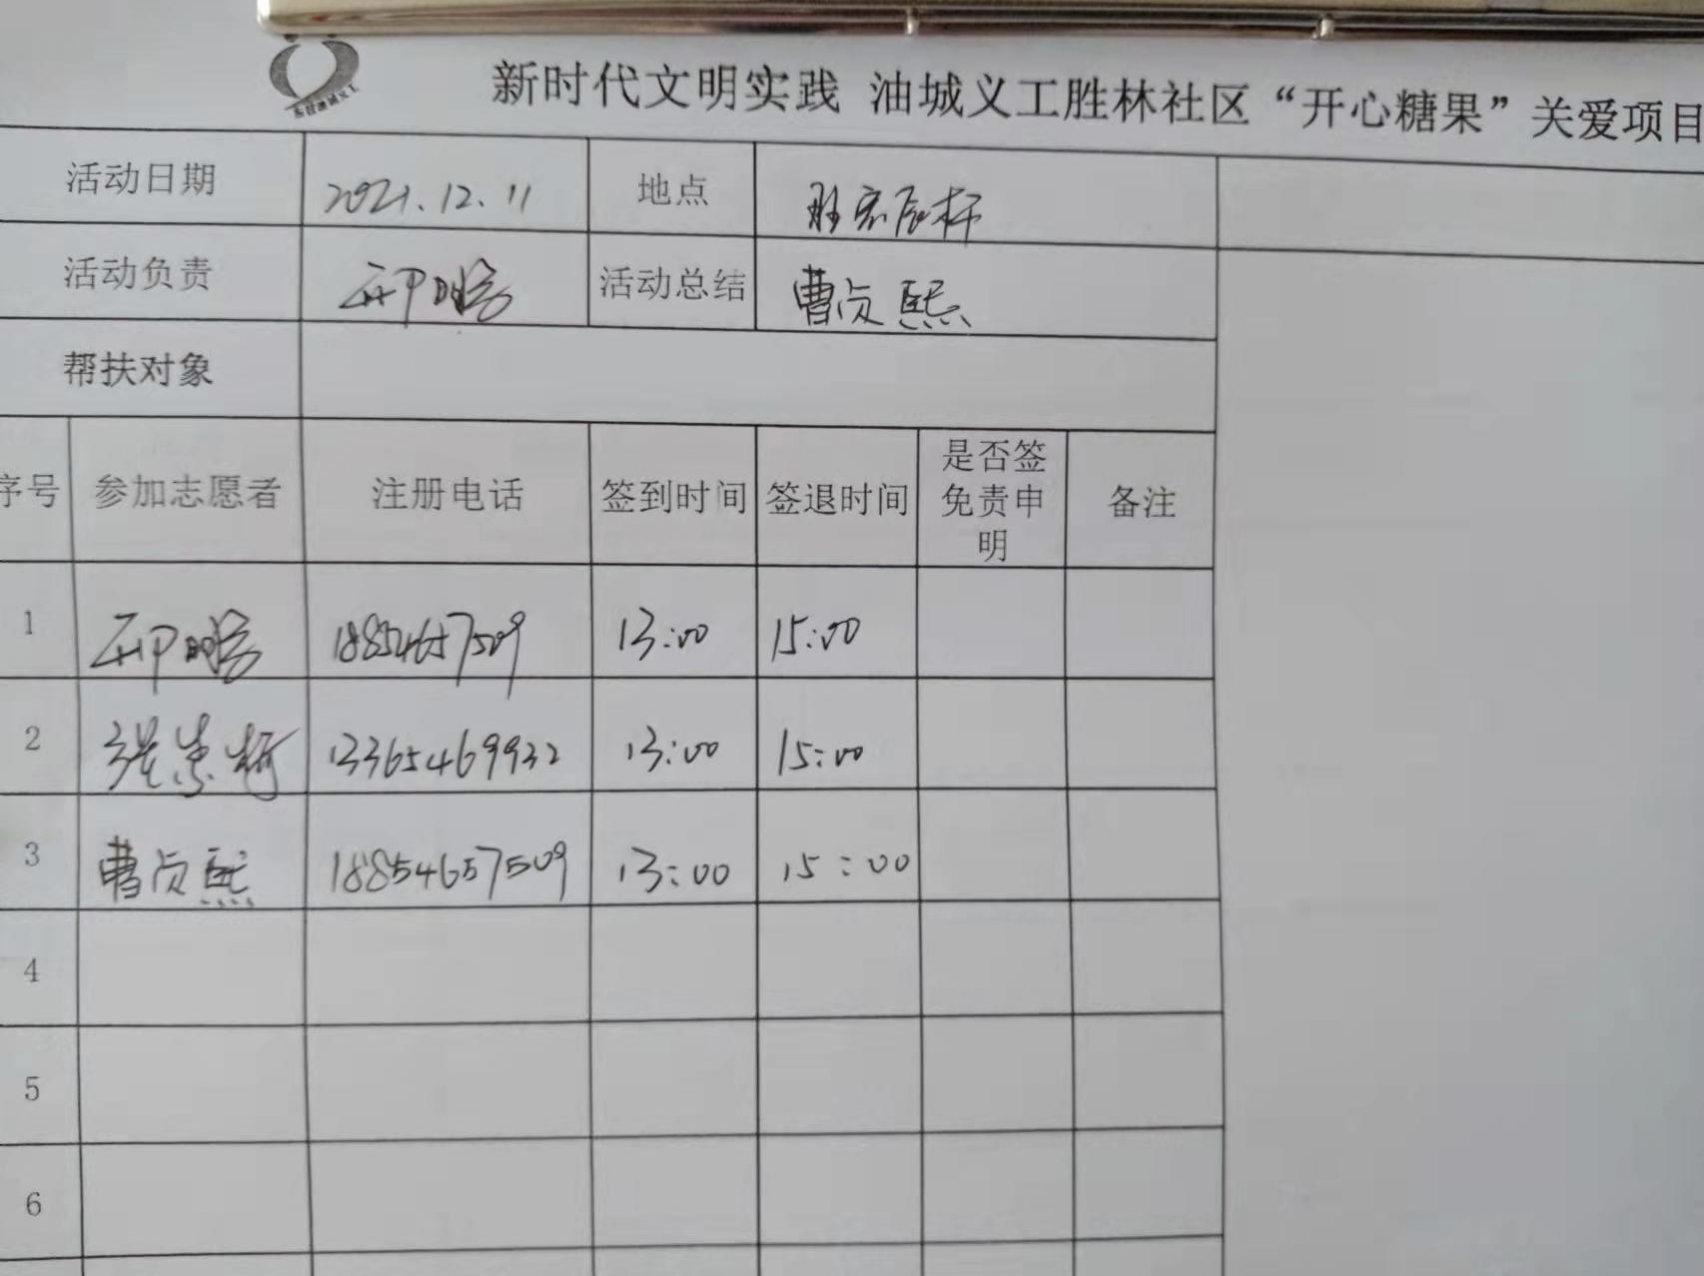 新时代文明实践 油城义工胜林社区“开心糖果”关爱项目
活动日期 2021.12.11 地点
活动负责 邢明 活动总结 曹贞熙
帮扶对象
序号 参加志愿者 注册电话 签到时间 签退时间 是否签免责申明 备注
1 邢明 18854657509 13:00 15:00
2 张 柯 13365469932 13:00 15:00
3 曹贞熙 18854657509 13:00 15:00
4
5
6